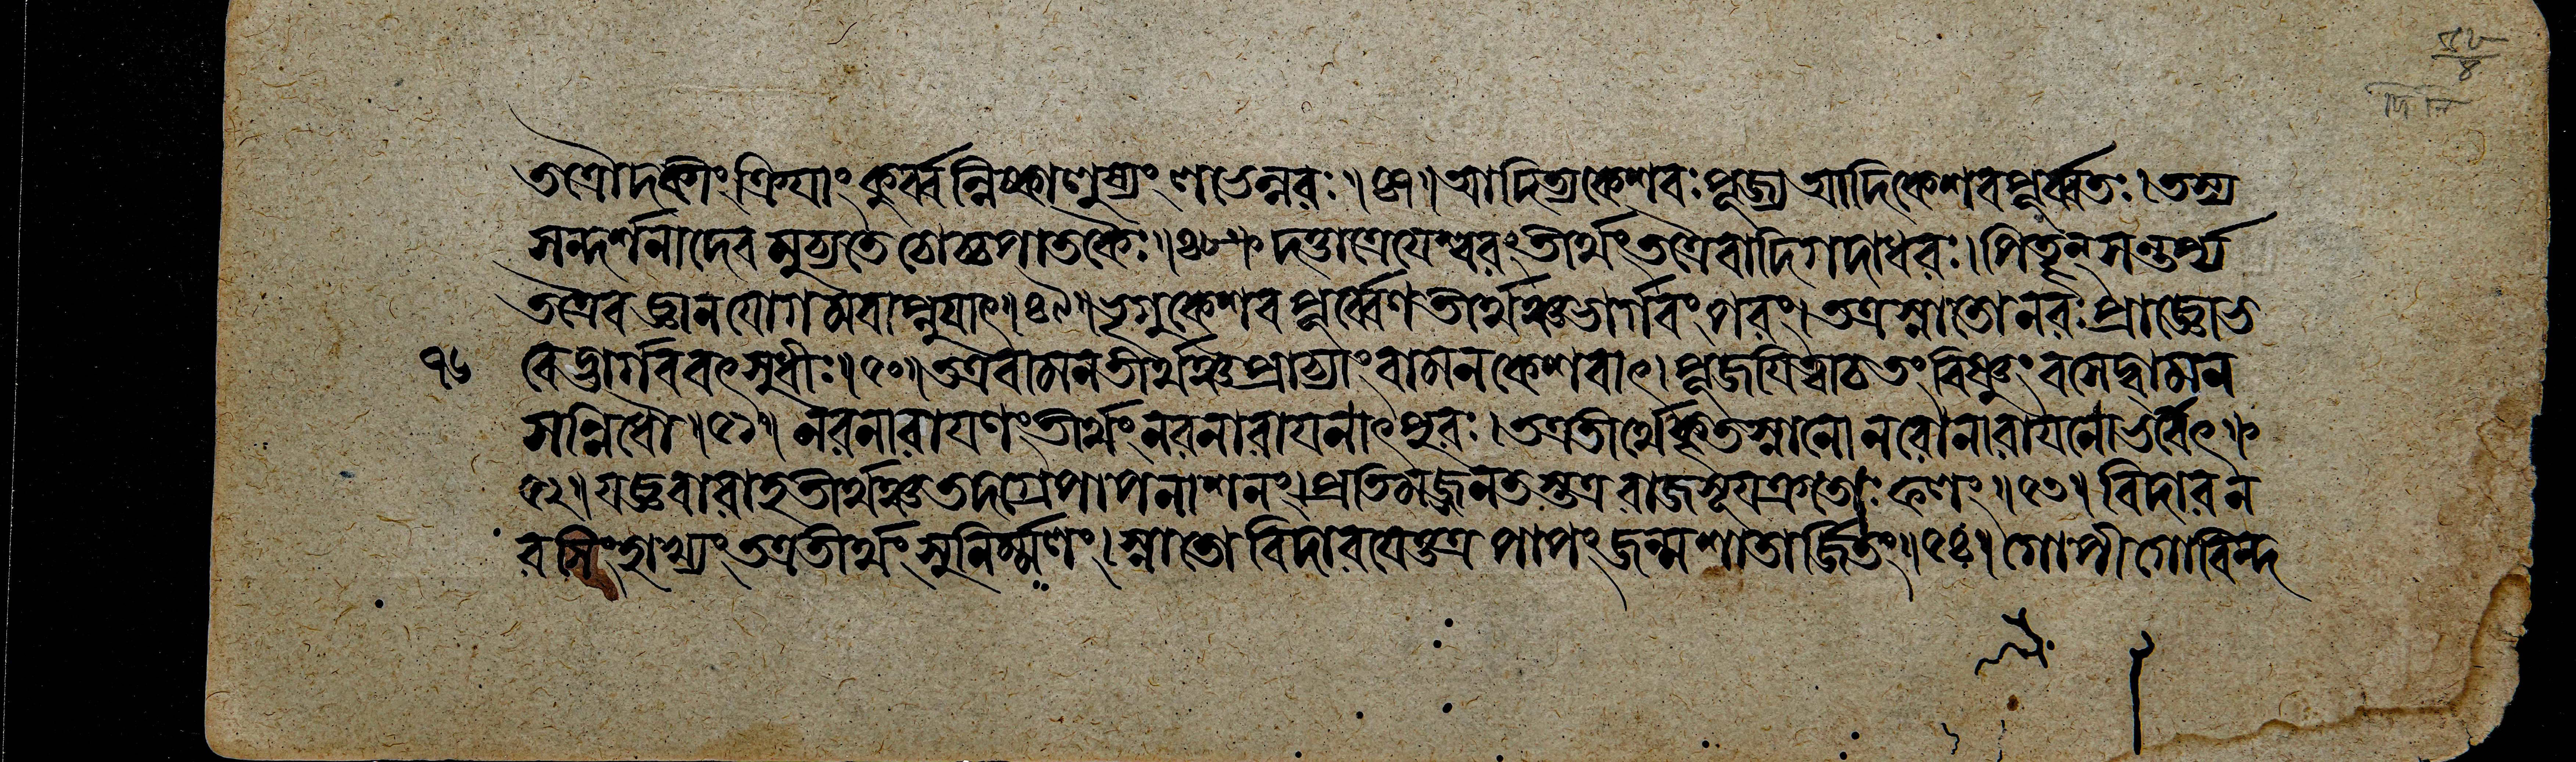 তত্রৌদকীং ক্রিয়াং কুর্ব্বন্নিষ্কাণুষ্যং ণভেন্নরঃ।৪৭॥আদিত্যকেশবঃ পূজ্য আদিকেশবপূর্ব্বতঃ।তস্য
সন্দর্শনাদেব মুচ্যতে চোচ্চপাতকৈঃ॥৪৮॥ দত্তাত্রেযেশ্বরং তীর্থং তত্রৈবাদিগদাধরঃ।পিতৄন্ সন্তর্প্য
তত্রৈব জ্ঞানযোগমবাপ্নুযাৎ॥৪৯॥ভৃগুকেশবপূর্ব্বেণ তীর্থঞ্চ ভার্গবং পরং।তত্র স্নাতো নরঃ প্রাজ্ঞো ভ
৭৬ বেদ্ভার্গববৎ সুধীঃ॥৫০॥তত্র বামনতীর্থঞ্চ প্রাচ্যাং বামনকেশবাৎ।পূজযিত্বাচ তং বিষ্ণুং বসেদ্বামন
সন্নিধৌ॥৫১॥ নরনারাযণং তীর্থং নরনারাযনাৎ পুরঃ।তত্র তীর্থে কৃতস্নানো নরো নারাযনো ভবেৎ॥
৫২॥যজ্ঞবারাহতীর্থঞ্চ তদগ্রে পাপনাশনং।প্রতিমজ্জনতস্তত্র রাজসূযক্রতোঃ ফণং॥৫৩॥ বিদারন
রসিংহাখ্যং তত্র তীর্থং সুনির্ম্মণং।স্নাতো বিদারযেত্তত্র পাপং জন্মশতার্জ্জিতং॥৫৪॥ গোপীগোবিন্দ